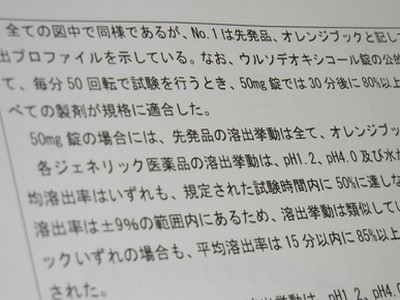 全ての図中で同様であるが、No.1は先発品、オレンジブックと記して
出プロファイルを示している。なお、ウルソデオキシコール錠の公的
て、毎分50回転で試験を行うとき、50mg錠では30分後に80%以上
べての製剤が規格に適合した。
50mg錠の場合には、先発品の溶出挙動は全て、オレンジブッ
各ジェネリック医薬品の溶出挙動は、pH1.2、pH4.0及び水が
均溶出率はいずれも、規定された試験時間内に50%に達しな
溶出率は±9%の範囲内にあるため、溶出挙動は類似してい
ックいずれの場合も、平均溶出率は15分以内に85%以上
された。
溶出挙動は、pH1.2、pH4.0